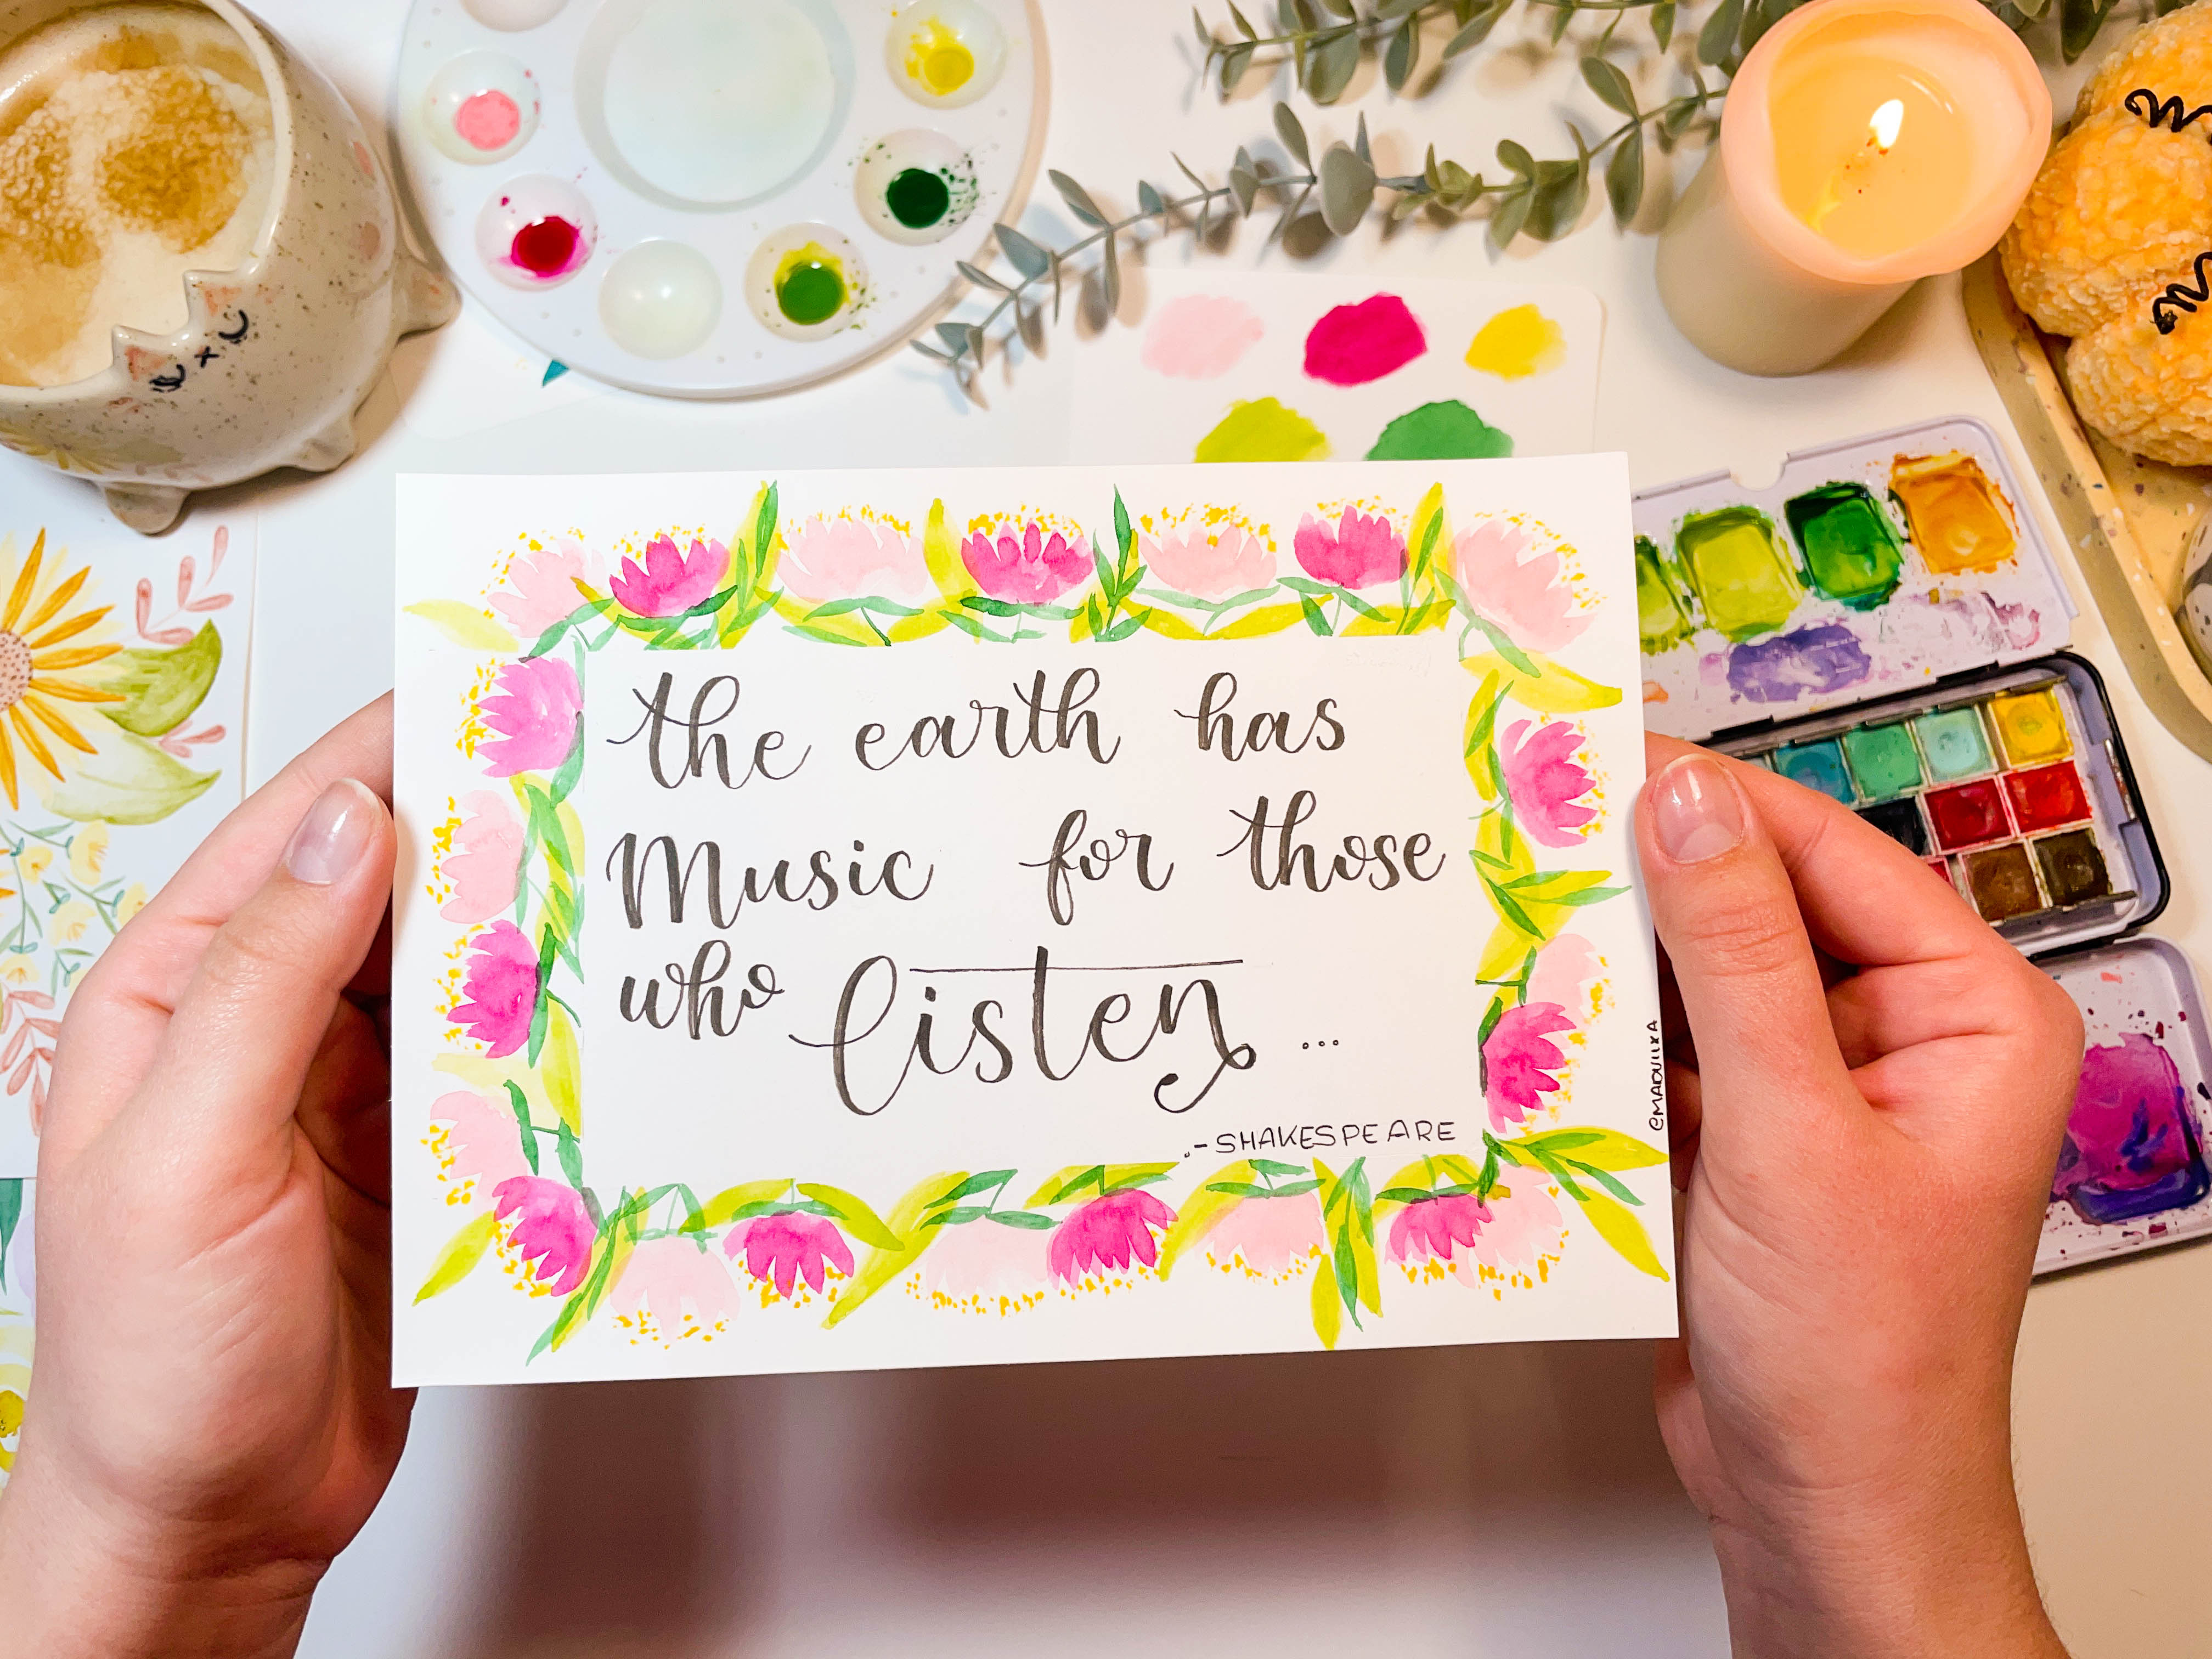 the earth has
Music for those
who listen ...
.-SHAKESPEARE
@MADULIXA